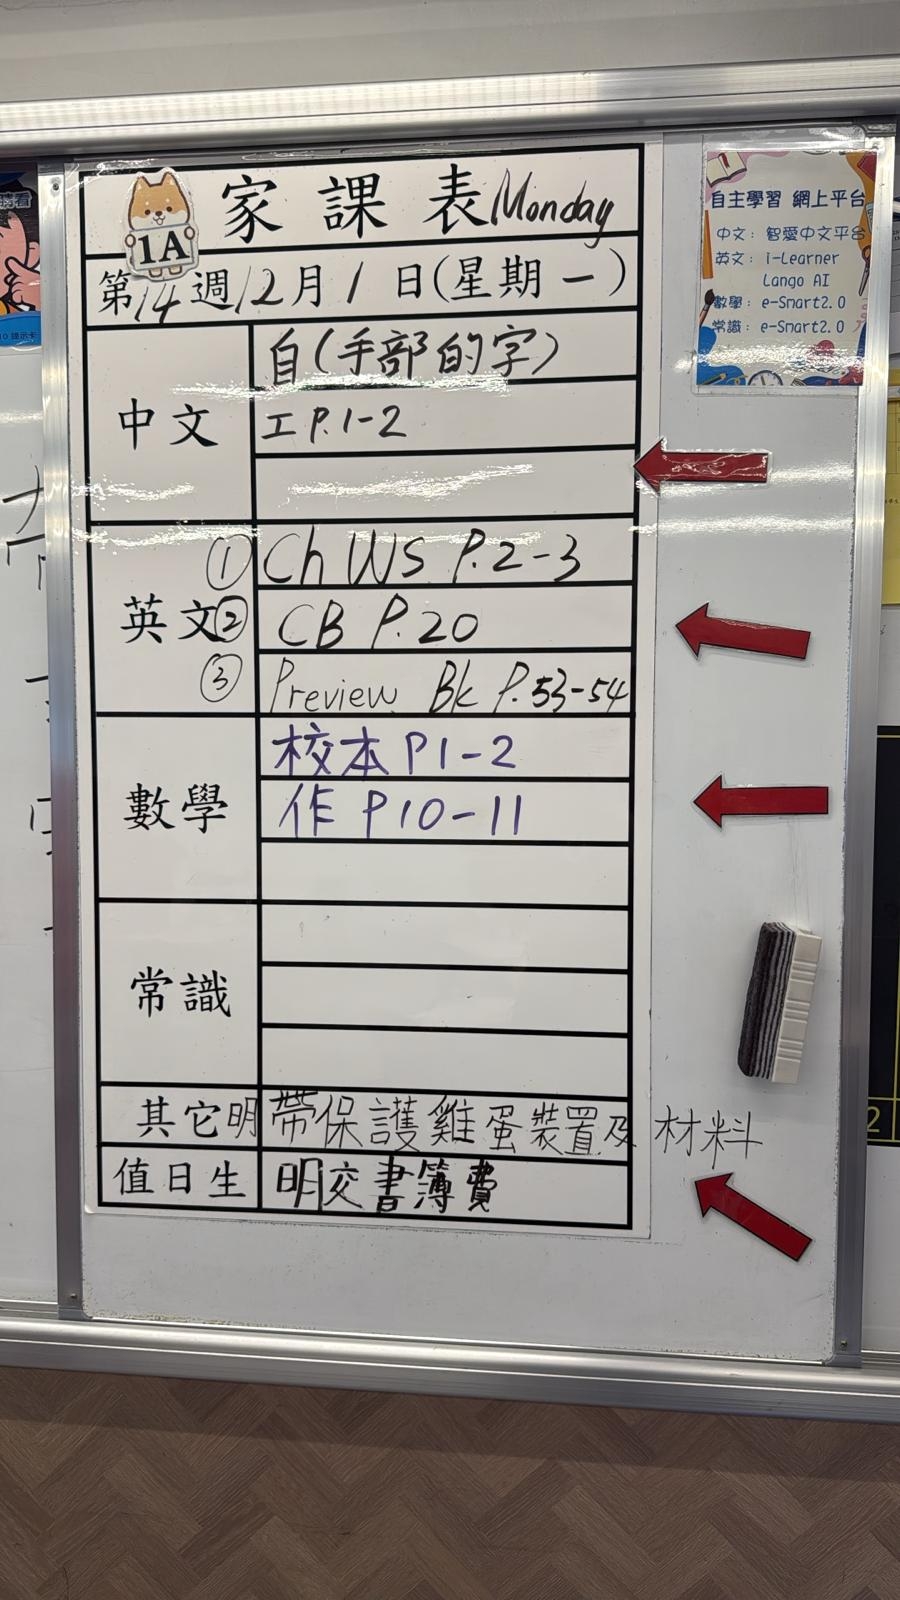 家課表 Monday
1A
第14週12月1日(星期一)
中文
自(手部的字)
工P.1-2
英文
① Ch WS P.2-3
② CB P.20
③ Preview Bk P.53-54
數學
校本P1-2
作 P10-11
常識
其它 明帶保護雞蛋裝置及材料
值日生 明交書簿費
自主學習 網上平台
中文：智愛中文平台
英文：i-Learner
Lango AI
數學：e-Smart2.0
常識：e-Smart2.0